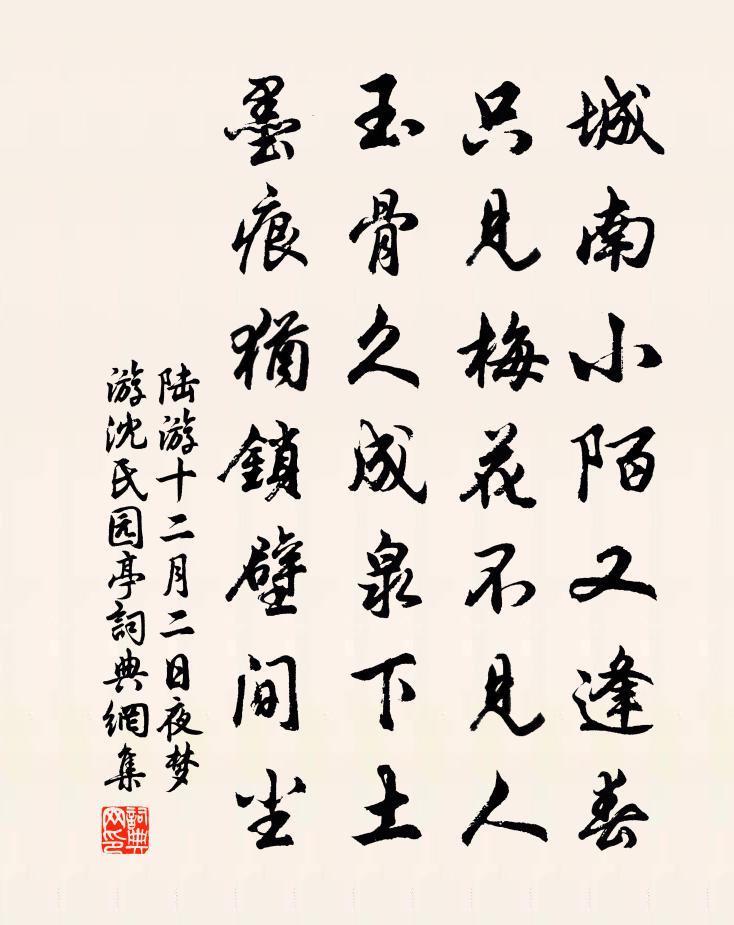 城南小陌又逢春
只见梅花不见人
玉骨久成泉下土
墨痕猶鎖壁间尘
陆游十二月二日夜梦
游沈氏园亭詞典網集
詞典
网印